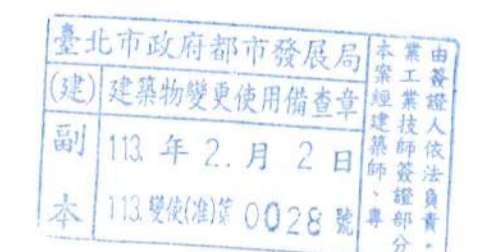 臺北市政府都市發展局
(建) 建築物變更使用備查章
副本
113. 年 2. 月 2 日
113.變使(准)第 0028 號
本案經建築師、專
業工業技師簽證部分
由簽證人依法負責